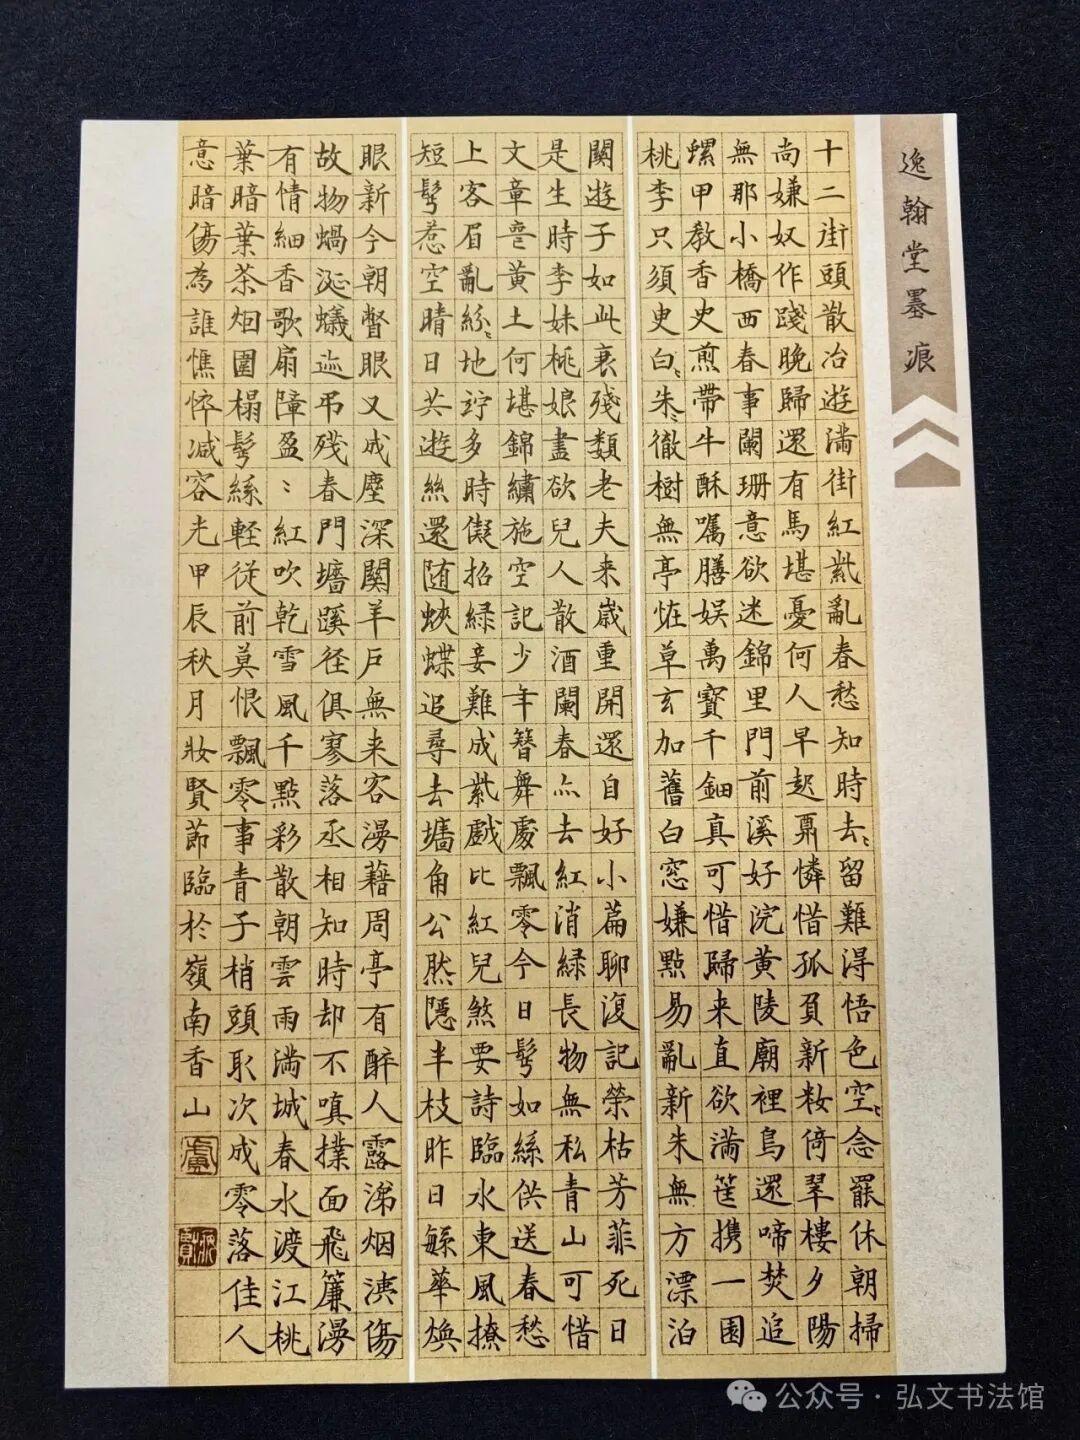 逸翰堂墨痕
十二街頭散冶遊滿街紅紫亂春愁知時去〻留難得悟色空〻念罷休朝掃
尚嫌奴作踐晚歸還有馬堪憂何人早起鼎憐惜孤負新妝倚翠樓夕陽
無那小橋西春事闌珊意欲迷錦里門前溪好浣黃陵廟裡鳥還啼焚追
螺甲教香史煎帶牛酥囑膳娛萬寶千鈿真可惜歸来直欲滿筐攜一園
桃李只須史白〻朱〻徹樹無亭恠草玄加舊白窓嫌點易亂新朱無方漂泊
關遊子如此衰殘類老夫来歲重開還自好小篇聊復記榮枯芳菲死日
是生時李妹桃娘盡欲兒人散酒闌春亦去紅消綠長物無私青山可惜
文章喪黃土何堪錦繡施空記少年簪舞處飄零今日鬢如絲供送春愁
上客眉亂紛〻地竚多時儗招綠妾難成紫戲比紅兒煞要詩臨水東風撩
短鬢惹空晴日共遊絲還随蛺蝶追尋去墻角公然隱半枝昨日緐華煥
眼新今朝瞥眼又成塵深關羊戶無来客漫藉周亭有醉人露涕烟洟傷
故物蝸涎蟻迹弔殘春門墻蹊徑俱寥落丞相知時却不嗔撲面飛簾漫
有情細香歌扇障盈〻紅吹乾雪風千點彩散朝雲雨滿城春水渡江桃
葉暗葉茶烟圍榻鬢絲輕從前莫恨飄零事青子梢頭取次成零落佳人
意暗傷為誰憔悴減容光甲辰秋月妝賢節臨於嶺南香山
公众号·弘文书法馆